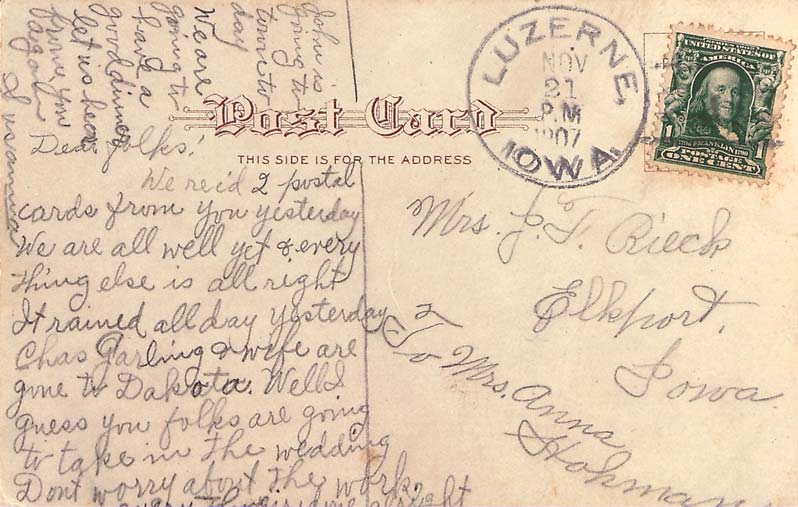 Post Card
THIS SIDE IS FOR THE ADDRESS
LUZERNE,
NOV
21
P.M
1907
IOWA.
UNITED STATES OF
AMERICA
1 FRANKLIN 1
POSTAGE
ONE CENT
Dear folks!
We rec'd 2 postal
cards from you yesterday
We are all well yet & every
thing else is all right
It rained all day yesterday
Chas Garling & wife are
gone to Dakota. Well I
guess you folks are going
to take in the wedding
Dont worry about the work
every thing is done alright
John is
going to
town to
day
We are
going to
have a
good dinner
let us hear
from you
again
Susanna
Mrs. J. T. Rieck
Elkport,
Iowa.
To Mrs. Anna
Hohman